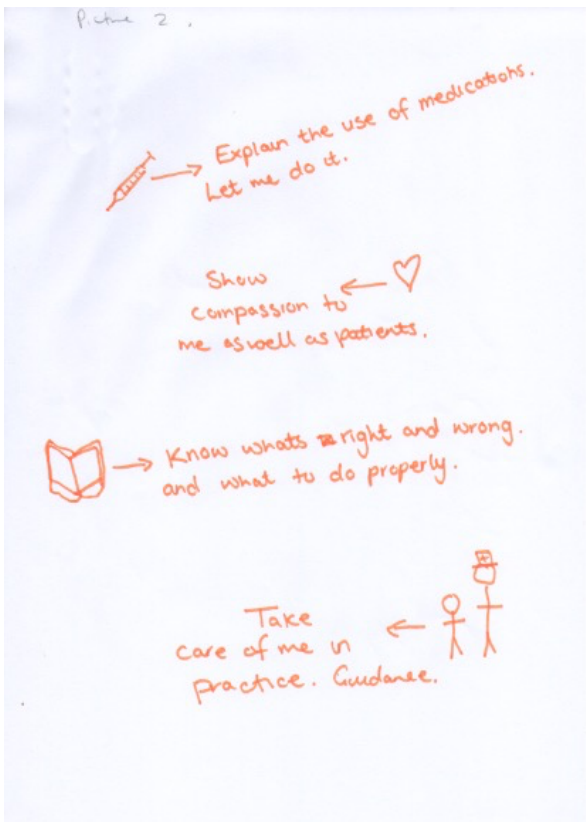 Picture 2.
Explain the use of medications.
Let me do it.
Show
compassion to
me aswell as patients.
Know whats right and wrong.
and what to do properly.
Take
care of me in
practice. Guidance.